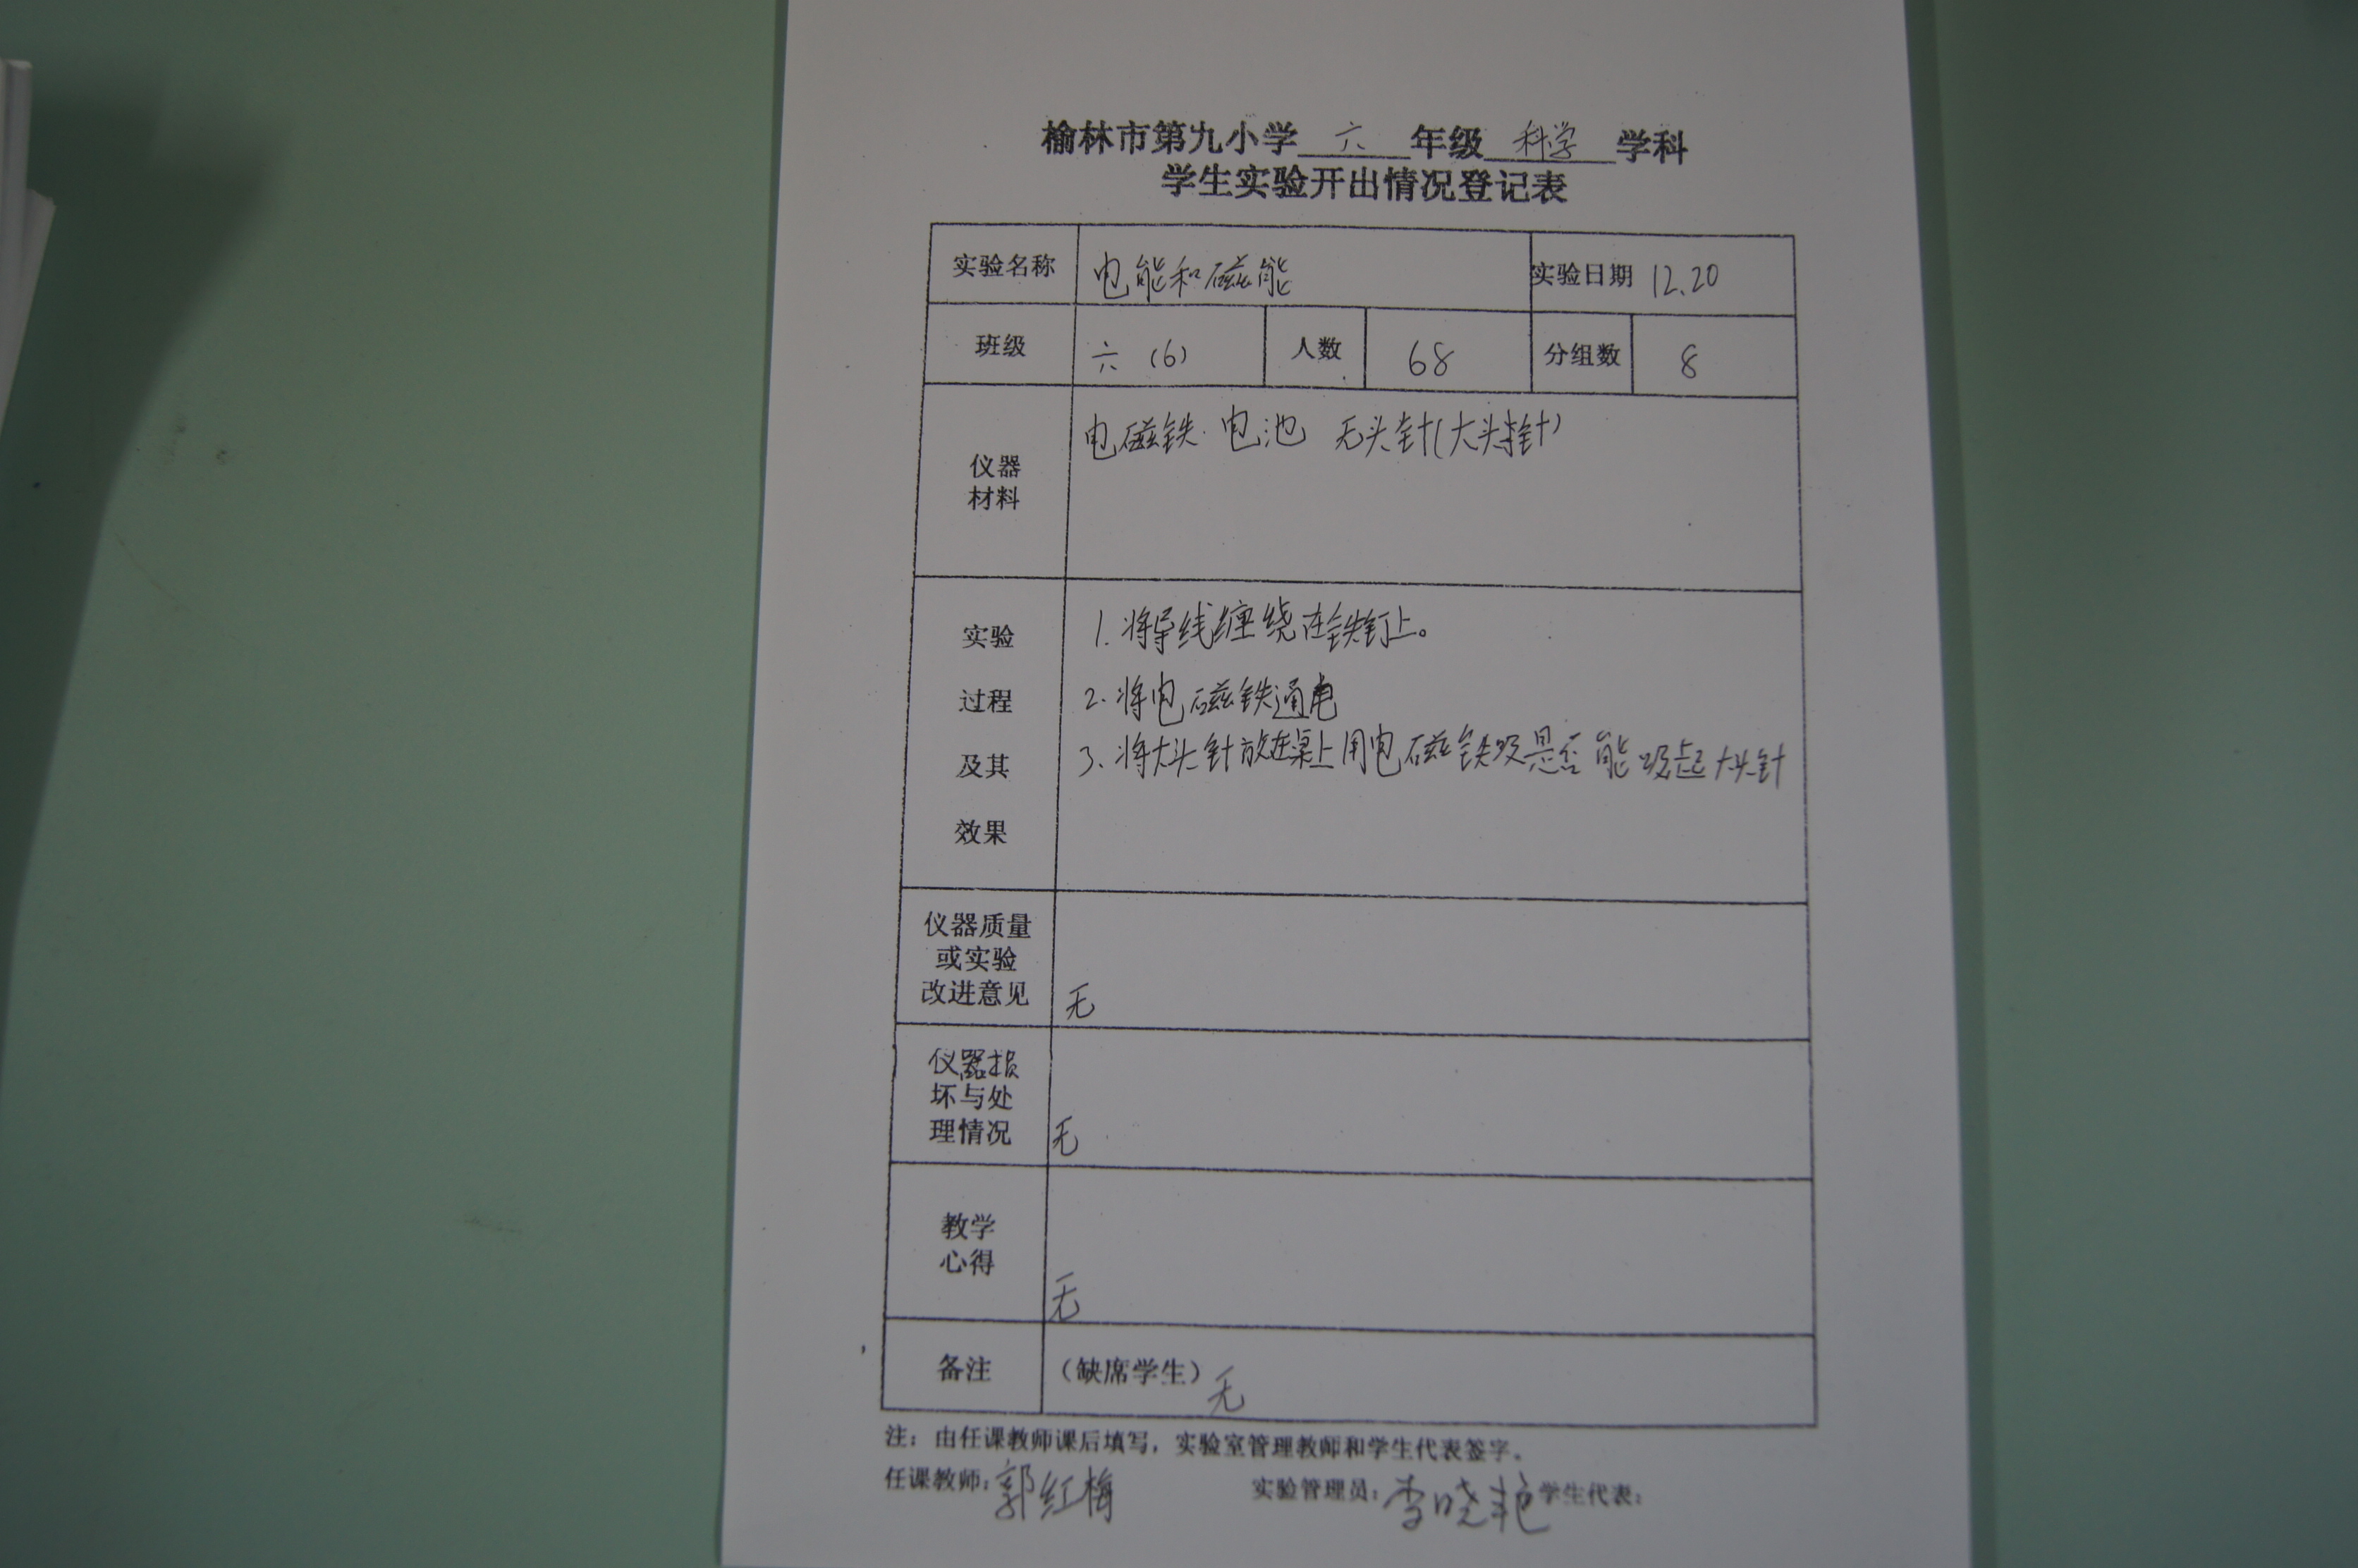 榆林市第九小学 六 年级 科学 学科
学生实验开出情况登记表
实验名称 电能和磁能 实验日期 12.20
班级 六(6) 人数 68 分组数 8
仪器
材料
电磁铁 电池 无头针(大头针)
实验
过程
及其
效果
1. 将导线缠绕在铁钉上。
2. 将电磁铁通电
3. 将大头针放在桌上用电磁铁吸是否能吸起大头针
仪器质量
或实验
改进意见
无
仪器损
坏与处
理情况
无
教学
心得
无
备注 (缺席学生) 无
注: 由任课教师课后填写, 实验室管理教师和学生代表签字。
任课教师: 郭红梅 实验管理员: 李晓艳 学生代表: